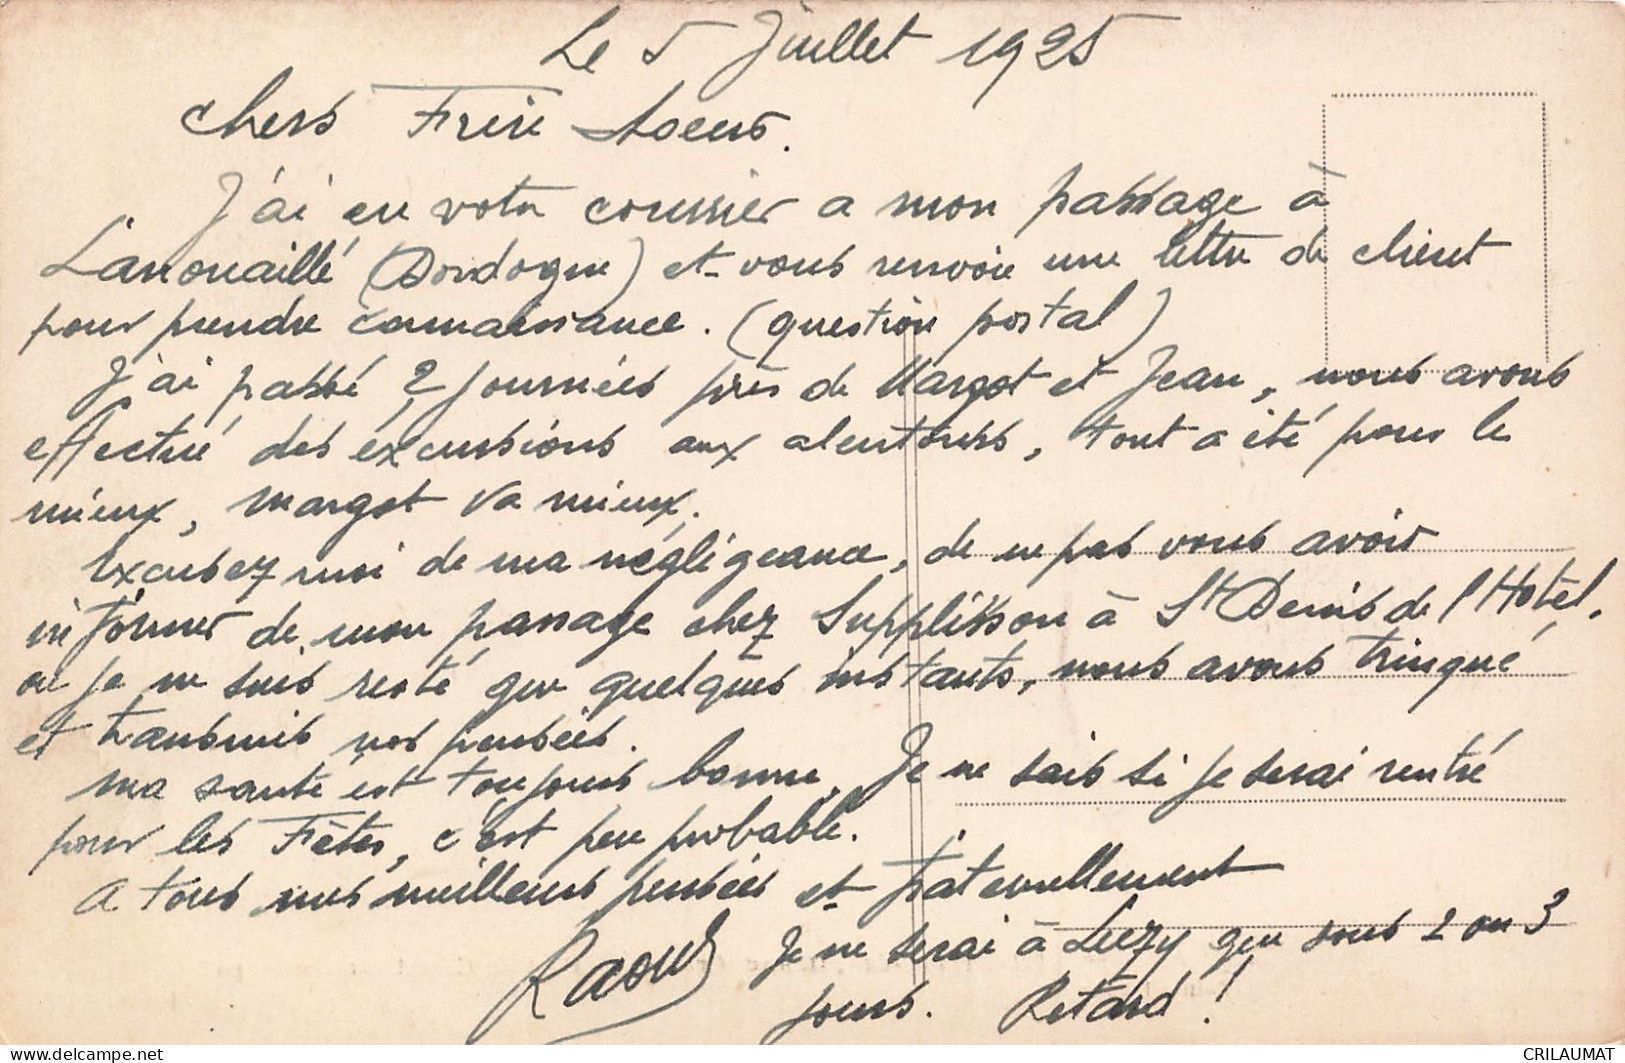 Le 5 Juillet 1925
Chers Frère Soeur.
J'ai eu votre courrier a mon passage à
Lanouaille (Dordogne) et vous renvoie une lettre de client
pour prendre connaissance. (question postal)
J'ai passé 2 journées près de Margot et Jean, nous avons
effectué des excursions aux alentours, tout a été pour le
mieux, Margot va mieux.
Excusez moi de ma négligeance, de ne pas vous avoir
informer de mon passage chez Supplisson à St Denis de l'Hotel,
ou je ne suis resté que quelques instants, nous avons trinqué
et transmis nos pensées.
Ma santé est toujours bonne. Je ne sais si je serai rentré
pour les Fêtes, c'est peu probable.
A tous mes meilleurs pensées et fraternellement
Raoul
Je ne serai à Luzy que sous 2 ou 3
jours. Retard !
CRILAUMAT